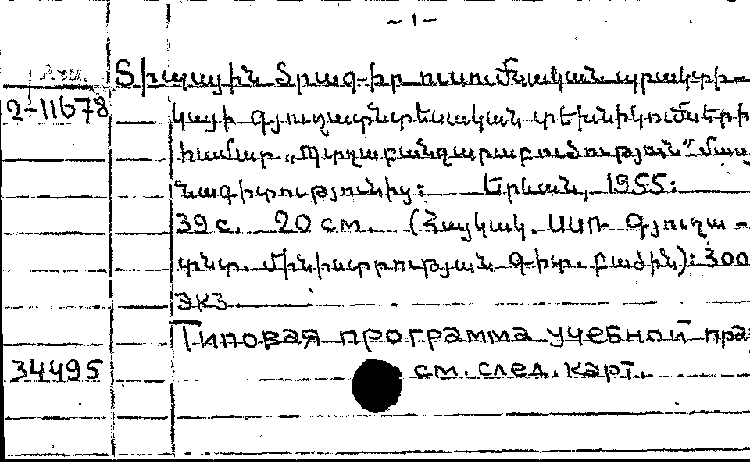 – 1 –
Տիպային ծրագիր ուսումնական պրակտի-
2-11678 կայի գյուղատնտեսական տեխնիկումների
համար „Պտղաբանջարաբուծություն“ մաս
նագիտությունից: Երևան, 1955:
39 с. 20 см. (Հայկակ. ՍՍՌ Գյուղա-
տնտ. մինիստրության Գիտ. բաժին): 300
экз.
Типовая программа учебной пра
34495 см. след. карт.